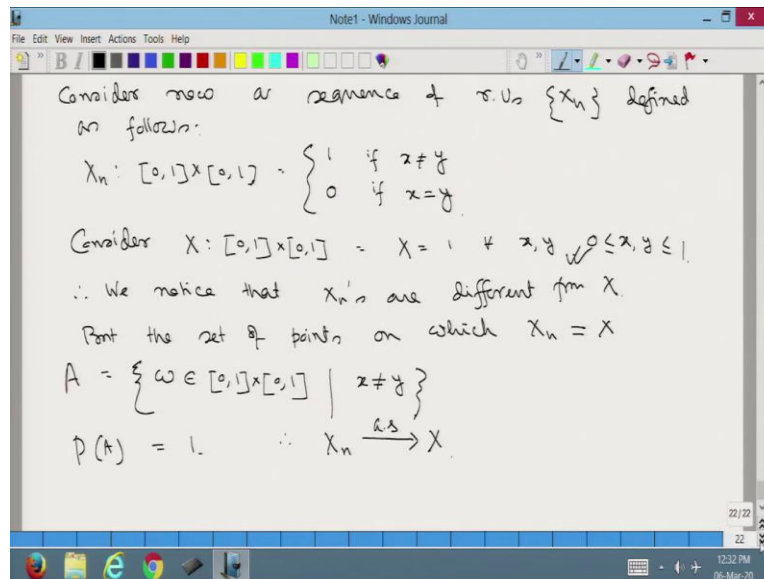 Note1 - Windows Journal
File Edit View Insert Actions Tools Help
Consider now a sequence of r.vs {Xn} defined
as follows:
Xn : [0,1]×[0,1] = { 1 if x≠y
0 if x=y
Consider X : [0,1]×[0,1] = X = 1 ∀ x,y 0≤x,y≤1
∴ We notice that Xn's are different from X.
But the set of points on which Xn = X
A = { ω ∈ [0,1]×[0,1] | x≠y }
P(A) = 1. ∴ Xn a.s→ X.
22/22
22
12:32 PM
06-Mar-20